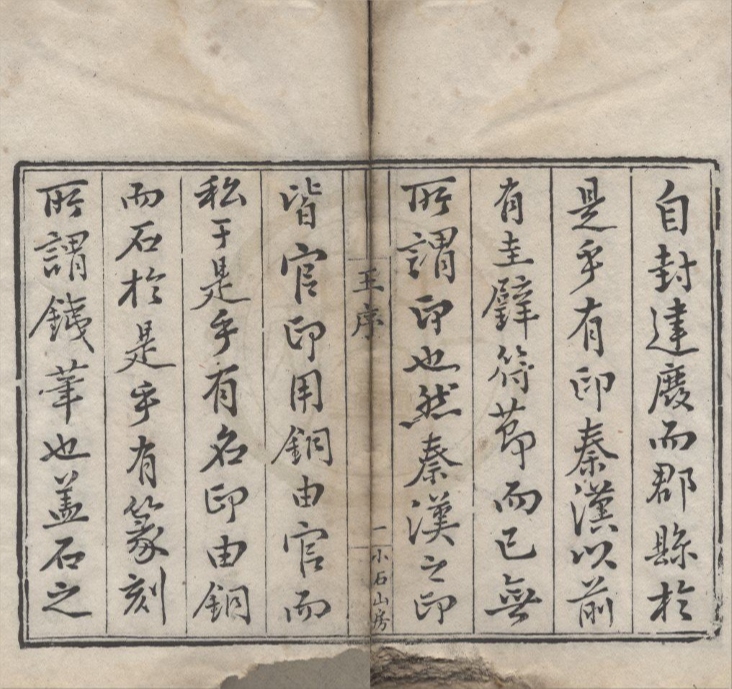 自封建廢而郡縣於
是乎有印秦漢以前
有圭璧符節而已無
所謂印也然秦漢之印
王序
一
小石山房
皆官印用銅由官而
私于是乎有名印由銅
而石於是乎有篆刻
所謂銕筆也盖石之